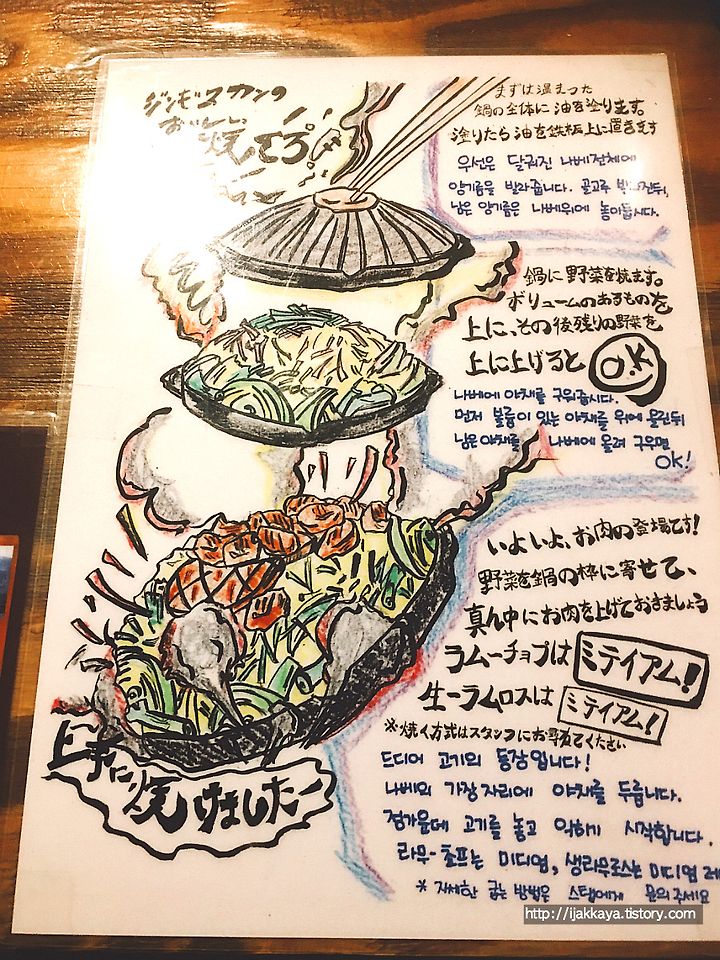 ジンギスカンの
おいしい
焼き方
まずは温まった
鍋の全体に油を塗ります。
塗りたら油を鉄板上に置きます
우선은 달궈진 나베전체에
양기름을 발라줍니다. 골고루 발라진뒤,
남은 양기름은 나베위에 놓아둡니다.
鍋に野菜を焼ます。
ボリュームのあるものを
上に、その後残りの野菜を
上に上げると O.K
나베에 야채를 구워줍시다.
먼저 볼륨이 있는 야채를 위에 올린뒤
남은 야채를 나베에 올려 구우면
OK!
いよいよ、お肉の登場です!
野菜を鍋の枠に寄せて、
真ん中にお肉を上げておきましょう
ラムーチョプは ミティアム!
生ーラムロスは ミティアム!
※焼く方式はスタッフにお尋ねてください
드디어 고기의 등장입니다!
나베의 가장자리에 야채를 두릅니다.
정가운데 고기를 놓고 익히기 시작합니다.
라무-쵸프는 미디엄, 생라무로스는 미디엄 레
* 자세한 굽는 방법은 스탭에게 문의주세요
上手に
焼けましたー
http://ijakkaya.tistory.com